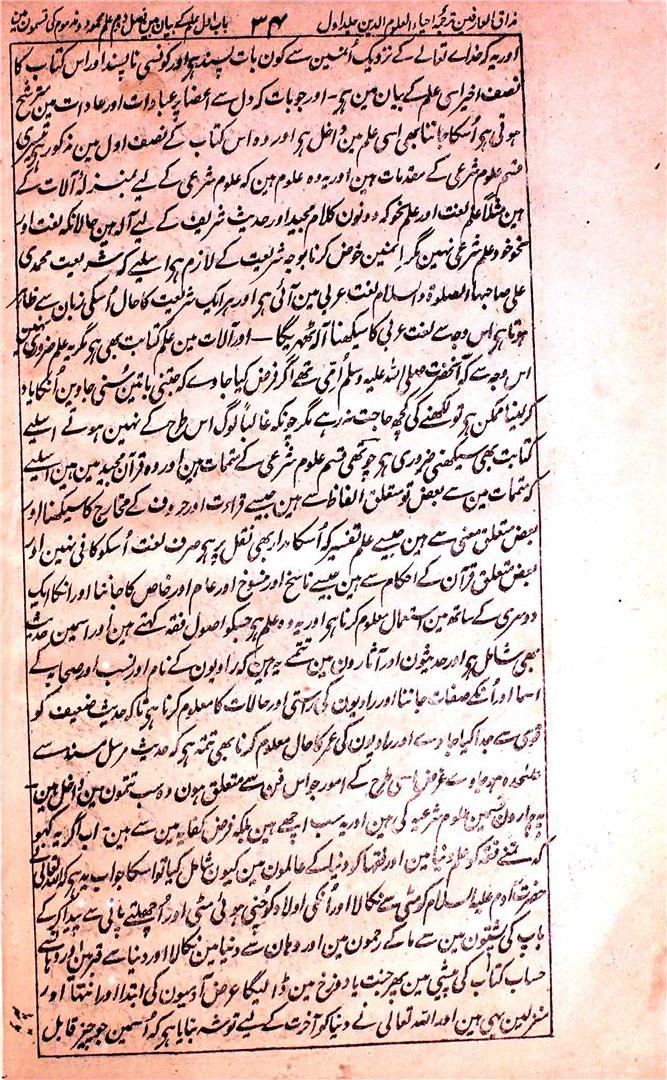 مذاق العارفین ترجمہ احیاء العلوم الدین جلد اول ۳۴ باب اول علم کے بیان مین فصل دوم علم محمود و مذموم کی قسمون مین
اور یہ کہ خداے تعالے کے نزدیک اُنمین سے کون بات پسند ہو اور کونسی ناپسند اور اس کتاب کا
نصف اخیر اسی علم کے بیان مین ہو۔ اور جو بات کہ دل سے اعضا پر عبادات اور عادات مین مترشح
ہوتی ہو اُسکا جاننا بھی اسی علم مین داخل ہو اور وہ اس کتاب کے نصف اول مین مذکور ہو تیسری
قسم علوم شرعی کے مقدمات ہین اور یہ وہ علوم ہین کہ علوم شرعی کے لیے بمنزلہ آلات کے
ہین مثلاً علم لغت اور علم نحو کہ دونون کلام مجید اور حدیث شریف کے لیے آلہ ہین حالانکہ لغت اور
نحو خود علم شرعی نہین مگر اِنمین خوض کرنا بوجہ شریعت کے لازم ہوا اسلیے کہ شریعت محمدی
علی صاحبہا الصلوة والسلام لغت عربی مین آئی ہو اور ہر ایک شریعت کا حال اُسکی زبان سے ظاہر
ہوتا ہو اس وجہ سے لغت عربی کا سیکھنا آلہ ٹھہریگا — اور آلات مین علم کتابت بھی ہو مگر یہ علم ضروری نہین
اس وجہ سے کہ آنحضرت صلی اللہ علیہ وسلم اُمّی تھے اگر فرض کیا جاوے کہ جتنی باتین سُنی جاوین اُنکا یاد
کرلینا ممکن ہو تو لکھنے کی کچھ حاجت نہ رہے مگر چونکہ غالباً لوگ اس طرح کے نہین ہوتے اسلیے
کتابت بھی سیکھنی ضروری ہو چوتھی قسم علوم شرعی کے متممات ہین اور وہ قرآن مجید مین ہین اسلیے
کہ متممات مین سے بعض تو متعلق الفاظ سے ہین جیسے قراءت اور حروف کے مخارج کا سیکھنا اور
بعض متعلق معنی سے ہین جیسے علم تفسیر کو اُسکا مدار بھی نقل پر ہو صرف لغت اُسکو کافی نہین اور
بعض متعلق قرآن کے احکام سے ہین جیسے ناسخ اور منسوخ اور عام اور خاص کا جاننا اور انکا ایک
دوسری کے ساتھ مین استعمال معلوم کرنا ہو اور یہ وہ علم ہو جسکو اصول فقہ کہتے ہین اور اسمین حدیث
بھی شامل ہو اور حدیثون اور آثارون مین تتمے یہ ہین کہ راویون کے نام اور نسب اور صحابہ کے
اسما اور اُنکے صفات جاننا اور راویون کی راستی اور حالات کا معلوم کرنا ہو تاکہ حدیث ضعیف کو
قوی سے جدا کیا جاوے اور راویون کی عمر کا حال معلوم کرنا بھی تتمہ ہو کہ حدیث مرسل مسند سے
علٰحدہ ہو جاوے غرض اسی طرح کے امور جو اس فن سے متعلق ہون وہ سب تتمون مین داخل ہین
یہ چارون قسمین علوم شرعیہ کی ہین اور یہ سب اچھے ہین بلکہ فرض کفایہ مین سے ہین۔ اب اگر یہ کہو
کہ تمنے فقہ کو علم دنیا مین اور فقہا کو دنیا کے عالمون مین کیون شامل کیا تو اسکا جواب یہ ہو کہ اللہ تعالی نے
حضرت آدم علیہ السلام کو مٹی سے نکالا اور اُنکی اولاد کو چُنی ہوئی مٹی اور اُچھلتے پانی سے پیدا کر کے
باپ کی پشتون مین سے ما کے رحمون مین اور وہان سے دنیا مین نکالا اور دنیا سے قبر مین اور وہان سے
حساب کتاب کی پیشی مین پھر جنت یا دوزخ مین ڈالیگا غرض آدمیون کی ابتدا اور انتہا اور
منزلین یہی ہین اور اللہ تعالی نے دنیا کو آخرت کے لیے توشہ بنایا ہو کہ اُسمین جو چیز قابل